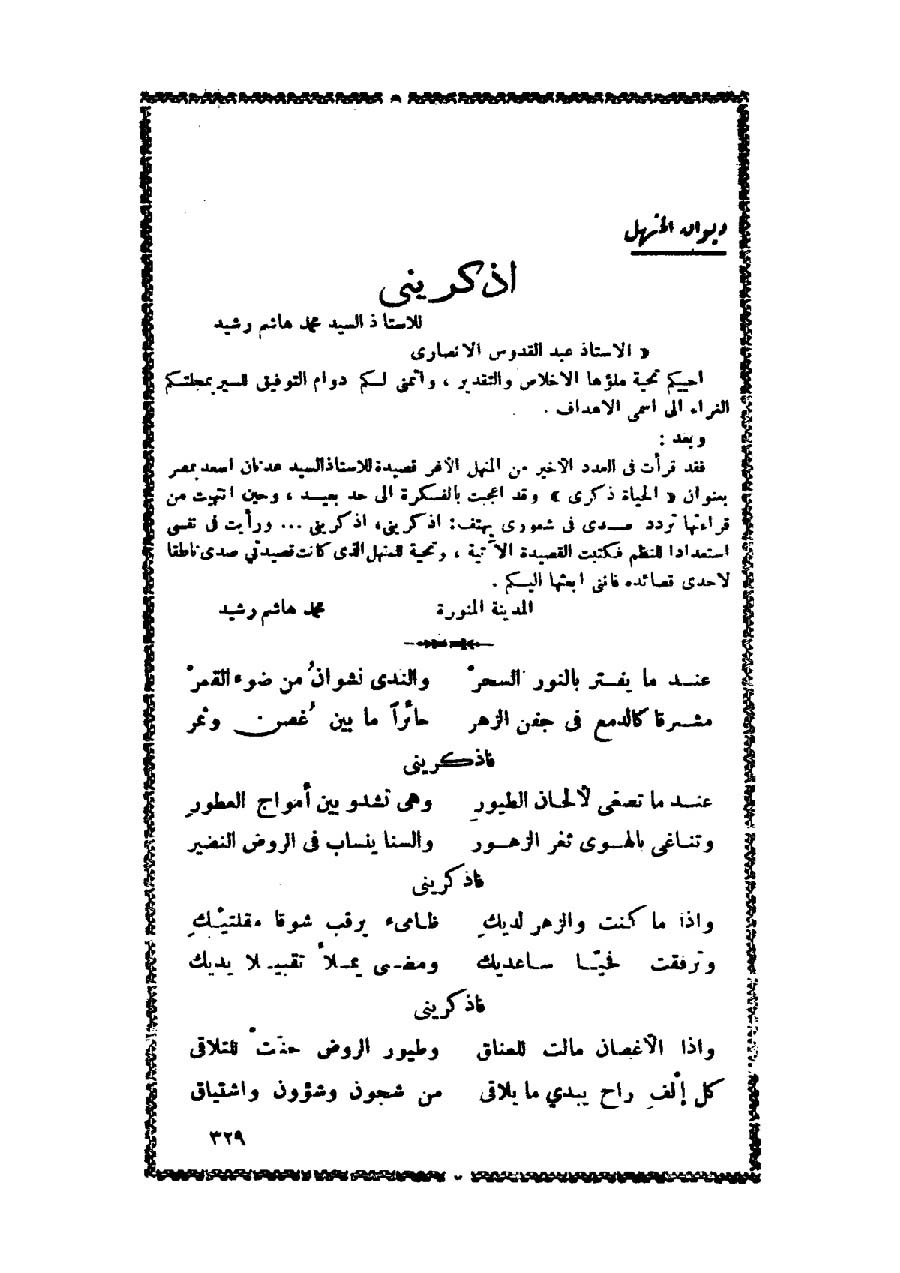 ديوان المنهل
اذكريني
للاستاذ السيد محمد هاشم رشيد
« الاستاذ عبد القدوس الانصارى
احييكم تحية ملؤها الاخلاص والتقدير ، واتمنى لكم دوام التوفيق للسير بمجلتكم
الغراء الى اسمى الاهداف .
وبعد :
فقد قرأت فى العدد الآخير من المنهل الأغر قصيدة للاستاذ السيد عدنان اسعد بمصر
بعنوان « الحياة ذكرى » وقد اعجبت بالفكرة الى حد بعيد ، وحين انتهيت من
قراءتها تردد صدى فى شعورى يهتف: اذكريني، اذكريني ... ورأيت فى نفسى
استعدادا للنظم فكتبت القصيدة الآتية ، وتحية للمنهل الذى كانت قصيدتي صدى ناطقا
لاحدى قصائده فانني ابعثها اليكم .
المدينة المنورة محمد هاشم رشيد
عند ما يفتر بالنور السحرْ والندى نشوانُ من ضوء القمرْ
مشرقا كالدمع فى جفن الزهر حائراً ما بين غُصن وثمر
فاذكرينى
عند ما تصغى لألحان الطيورِ وهى تشدو بين أمواج العطورِ
وتناغى بالهوى ثغر الزهور والسنا ينساب فى الروض النضير
فاذكرينى
واذا ما كنت والزهر لديكِ ظامىء يرقب شوقا مقلتيْكِ
وترفقت فحيّا ساعديك ومضى يملأ تقبيلا يديك
فاذكرينى
واذا الأغصان مالت للعناق وطيور الروض حنّتْ للتلاقى
كل إلْفٍ راح يبدي ما يلاقى من شجون وشؤون واشتياق
٣٢٩